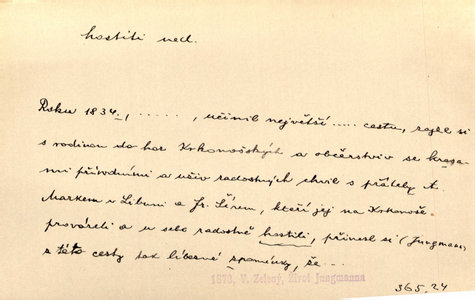 hostiti ned.
Roku 1834., . . . . . , učinil největší ..... cestu, zajel si
s rodinou do hor Krkonošských a občerstviv se krasa-
mi přírodními a užív radostných chvil s přátely A.
Markem v Libuni a Fr. Šírem, kteří jej na Krkonoše
prováděli a u sebe radostně hostili, přinesl si (Jungmann)
z této cesty tak líbezné zpomínky, že...
1873, V. Zelený, Život Jungmanna
365.24